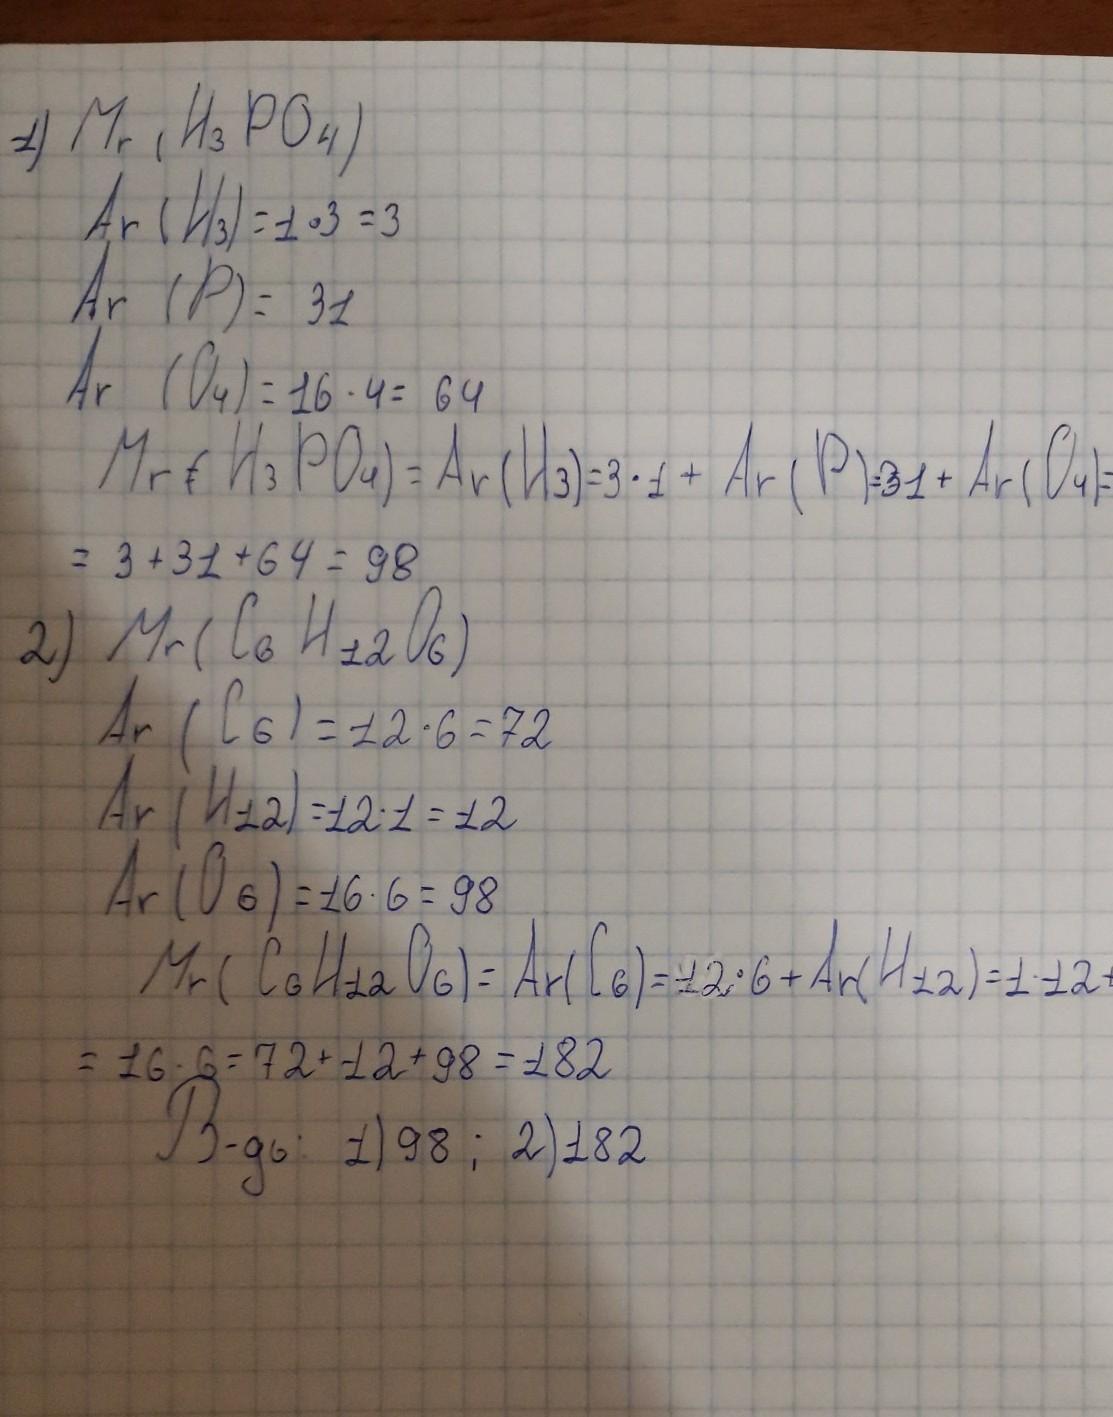 1) Mr (H₃PO₄)
Ar (H₃)=1·3=3
Ar (P)= 31
Ar (O₄)=16·4= 64
Mr (H₃PO₄)= Ar(H₃)=3·1+ Ar(P)=31+ Ar(O₄)=
= 3+31+64=98
2) Mr(C₆H₁₂O₆)
Ar (C₆)=12·6=72
Ar (H₁₂)=12·1=12
Ar(O₆)=16·6=98
Mr(C₆H₁₂O₆)= Ar(C₆)=12·6+Ar(H₁₂)=1·12+
= 16·6=72+12+98=182
В-дь: 1)98; 2)182